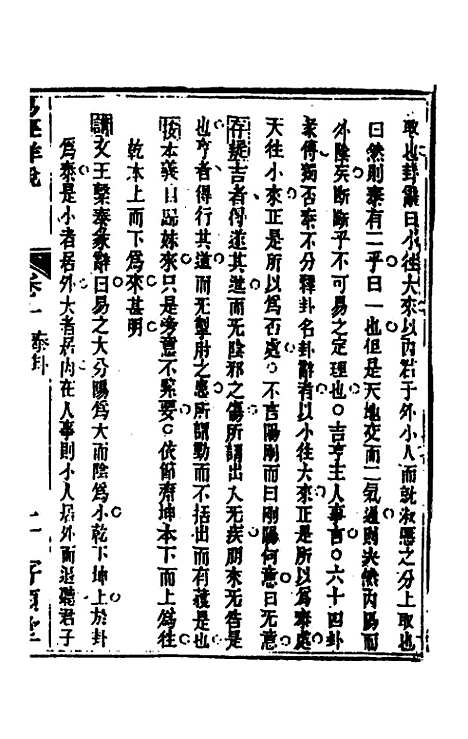 取也卦辭曰小往大來以內君子外小人而說淑慝之分上取也
曰然則泰有二乎曰一也但是天地交而二氣通則決然內陽而
外陰矣斷斷乎不可易之定理也吉亨主人事言六十四卦
彖傳獨否泰不分釋卦名卦辭有以小往大來正是所以為泰處
大往小來正是所以為否處不言陽剛而曰剛陽何意曰無意
存疑吉者得遂其進而無陰邪之傷所謂出入無疾朋來無咎是
也亨者得行其道而無掣肘之患所謂動而不括出而有獲是也
按本義曰歸妹來只是旁意不緊要依節齋坤本下而上為往
乾本上而下為來甚明
講文王繫泰彖辭曰易之大分陽為大而陰為小乾下坤上於卦
為泰是小者居外大者居內在人事則小人居外而退聽君子
易經詳說
卷十 泰卦
寄願堂